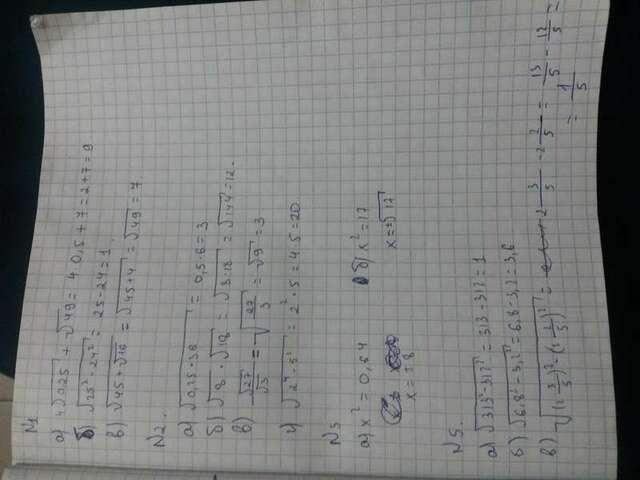 N1
а) 4√0,25 + √49 = 4·0,5+7=2+7=9
б) √25²-24² = 25-24=1.
в) √45+√16 = √45+4 = √49 = 7.
N2.
а) √0,25·36 = 0,5·6=3
б) √8 · √18 = √8·18 = √144=12.
в) √27/√3 = √27/3 = √9 = 3
г) √2⁴·5² = 2²·5=4·5=20
N3
а) x² = 0,64 б) x²=17
x=±8 x=±√17
N5.
а) √313²-312² = 313-312=1
б) √6,8²-3,2² = 6,8-3,2=3,6
в) √(2 3/5)²-(2 2/5)² = 2 3/5 - 2 2/5 = 13/5 - 12/5 =
= 1/5